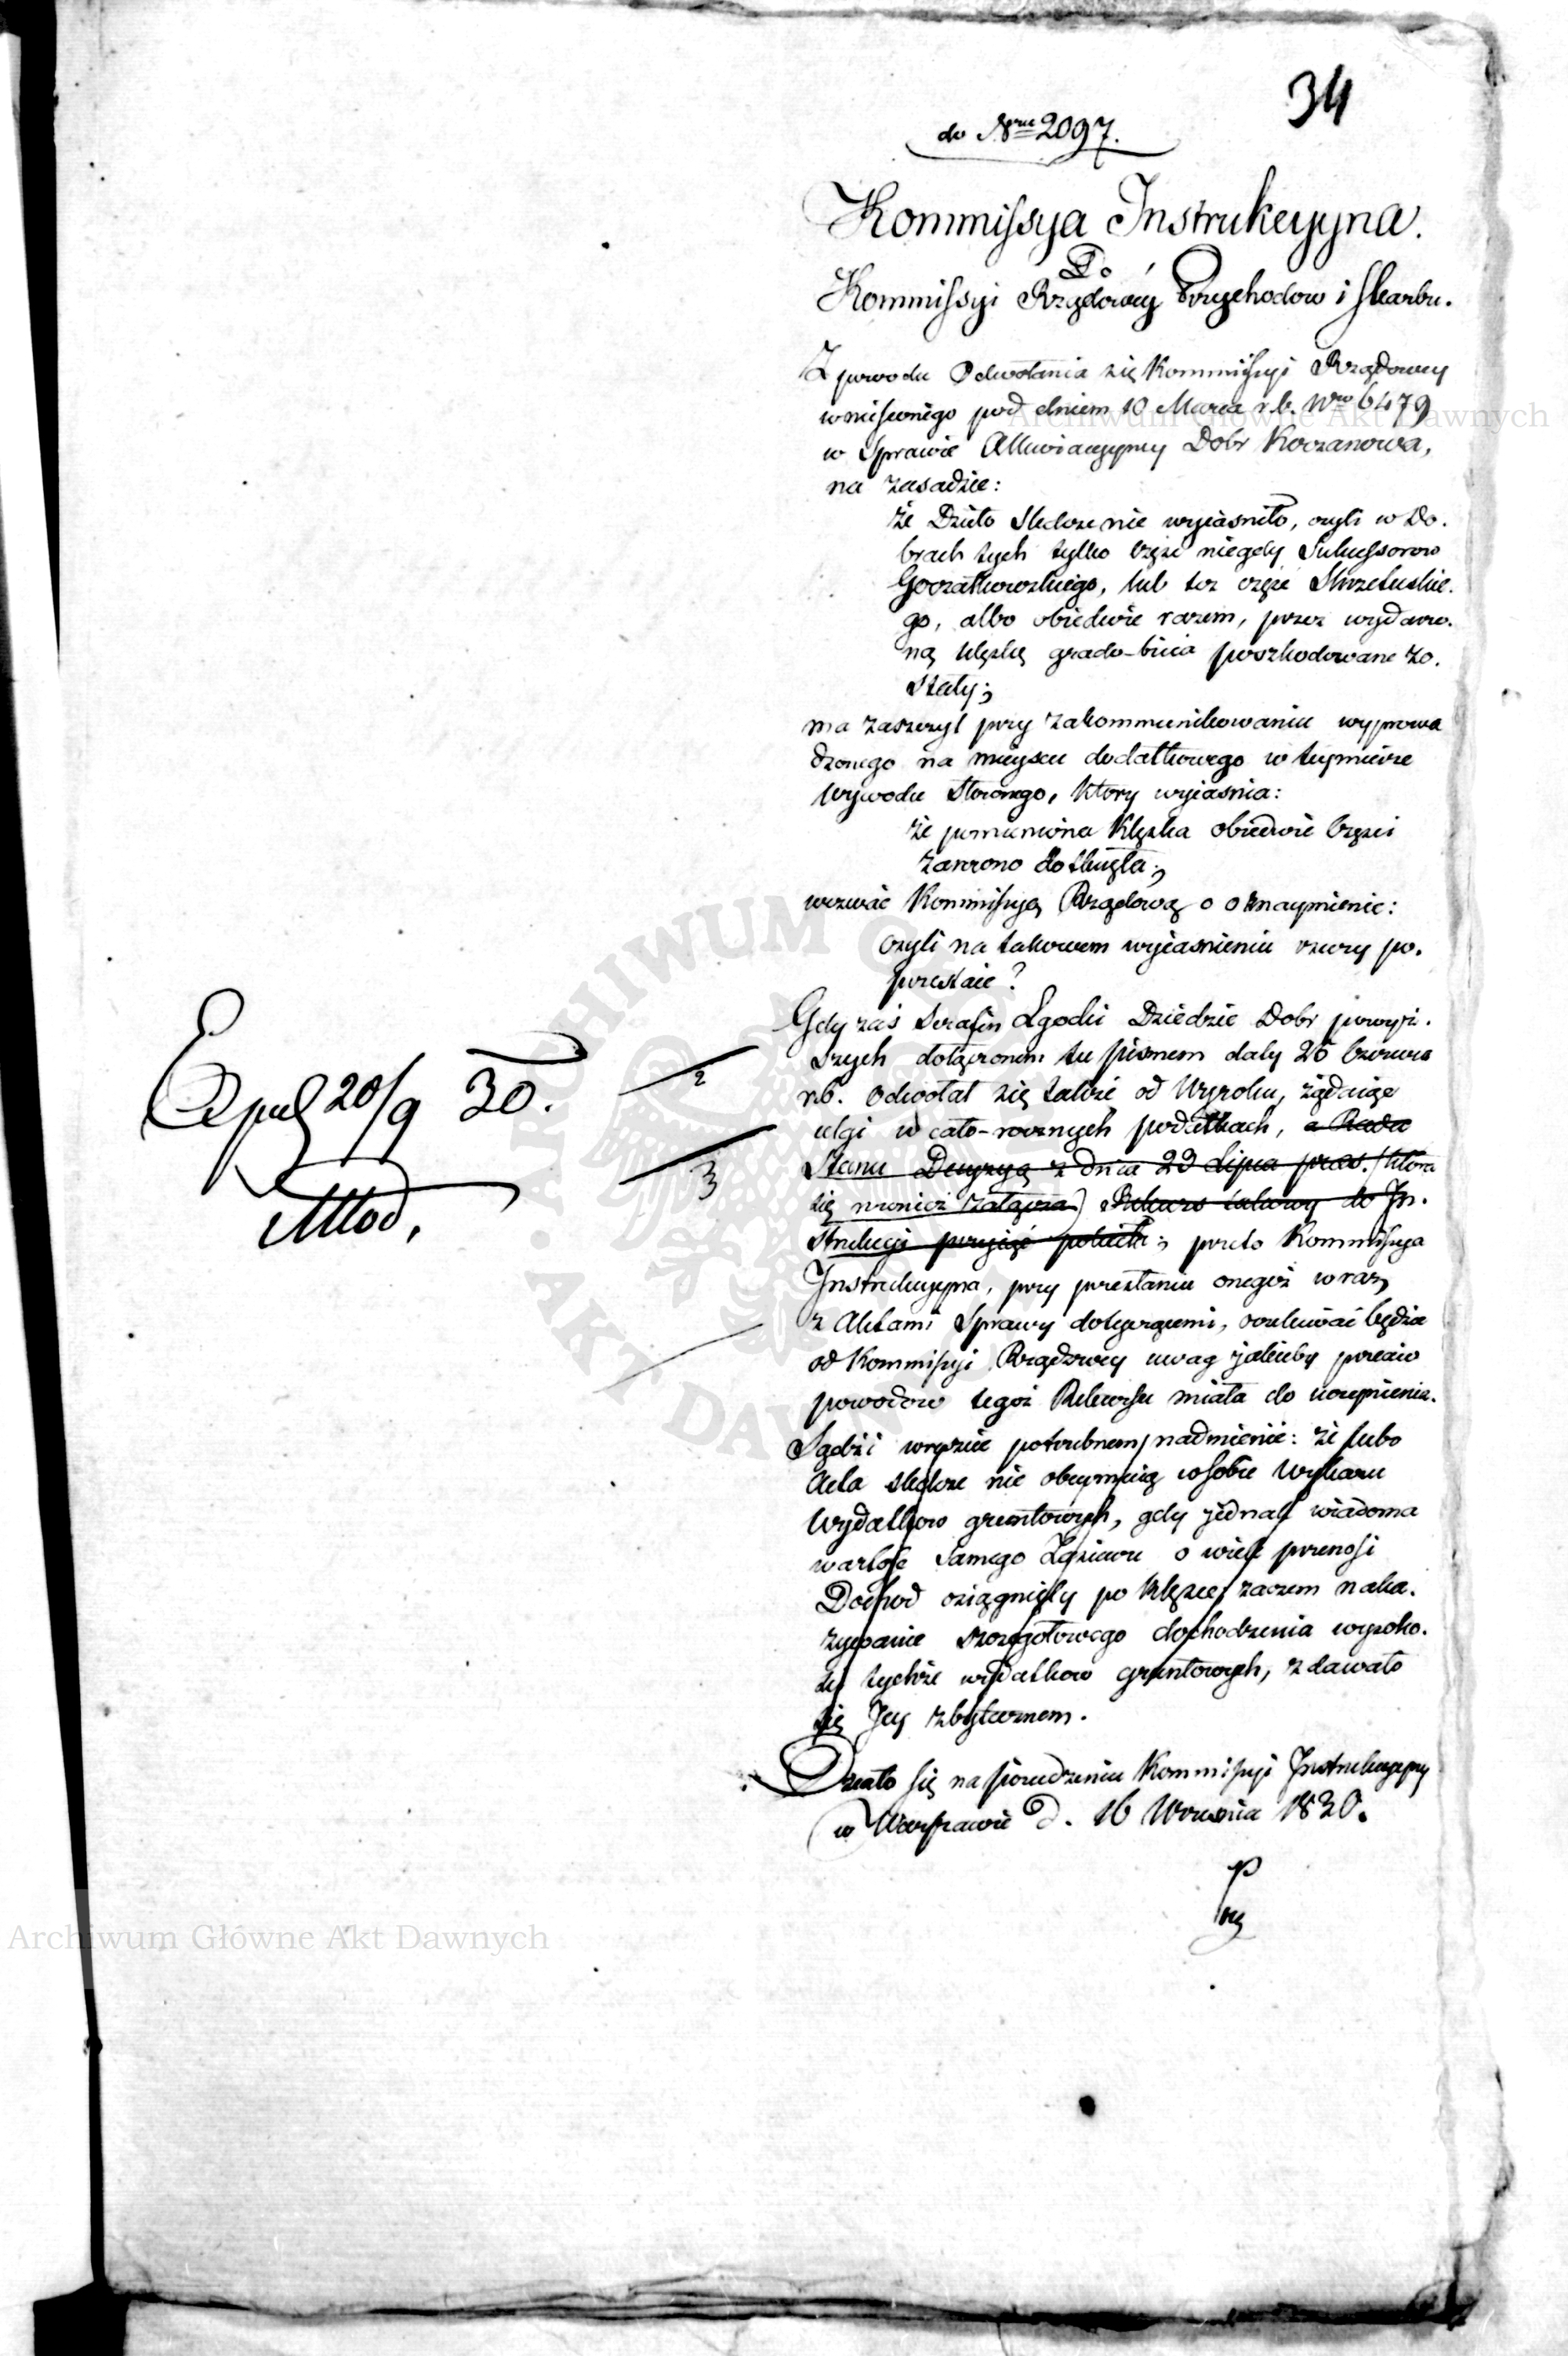 34
do Nru 2097.
Kommissya Instrukcyyna.
Do
Kommissyi Rządowéy Przychodow i Skarbu.
Z powodu Odwołania się Kommissyi Rządowey
wniesionego pod dniem 10 Marca r.b. Nro 6479
w Sprawie Allewiacyyney Dobr Koczanowa,
na zasadzie:
że Dzieło śledcze nie wyiaśniło, czyli w Do-
brach tych tylko część niegdy Sukcessorow
Goczałkowskiego, lub też część Skrzetuskie-
go, albo obiedwie razem, przez wydarzo-
ną klęskę grado-bicia poszkodowane zo-
stały;
ma zaszczyt przy zakommunikowaniu wyprowa
dzonego na mieyscu dodatkowego w teymierze
Wywodu Słownego, który wyiaśnia:
że pomieniona Klęska obiedwie części
zarówno dotknęła;
wezwać Kommissyą Rządową o oznaymienie:
czyli na takowem wyiaśnieniu rzeczy po-
przestaie?
Gdy zaś Serafin Zgodki Dziedzic Dobr powyż-
szych dołączonem tu pismem daty 26 Czerwca
r.b. odwołał się także od Wyroku, żądaiąc
ulgi w cało-rocznych podatkach, a Rada
Stanu Decyzyą z dnia 29 Lipca prze. (która
się również załącza) Rekurs takowy do In-
strukcyi przyiąć poleciła; przeto Kommissya
Instrukcyyna, przy przesłaniu onegoż wraz
z Aktami Sprawy dotyczącemi, oczekiwać będzie
od Kommissyi Rządowey uwag jakieby przeciw
powodów tegoż Rekursu miała do uczynienia.
Sądzi wreszcie potrzebnem nadmienić: że lubo
Acta śledcze nie obeymuią w sobie Wykazu
Wydatkow gruntowych, gdy jednak wiadoma
wartość Samego Zasiewu o wiele przenosi
Dochod osiągnięty po Klęsce, zaczem naka-
zywanie szczegółowego dochodzenia wysoko-
ści tychże wydatkow gruntowych, zdawało
się Jey zbytecznem.
Działo się na posiedzeniu Kommissyi Instrukcyyney
w Warszawie d. 16 Września 1830.
Exped 20/9 30.
Młod.
2
3
Archiwum Główne Akt Dawnych
Archiwum Główne Akt Dawnych